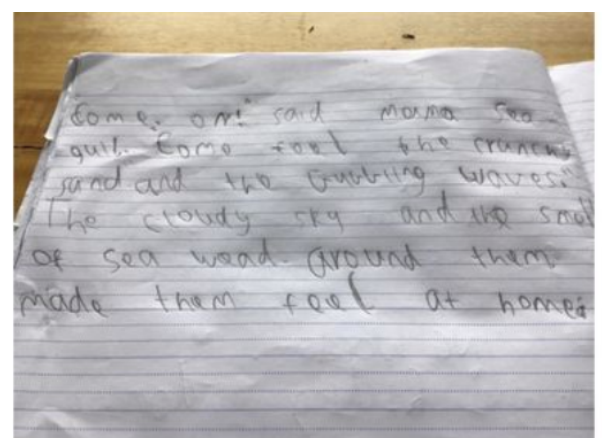 Come. on!" said mama sea-
gull. Come feel the crunchy
sand and the bubbling waves."
The cloudy sky and the smell
of sea wead. around them
made them feel at home.